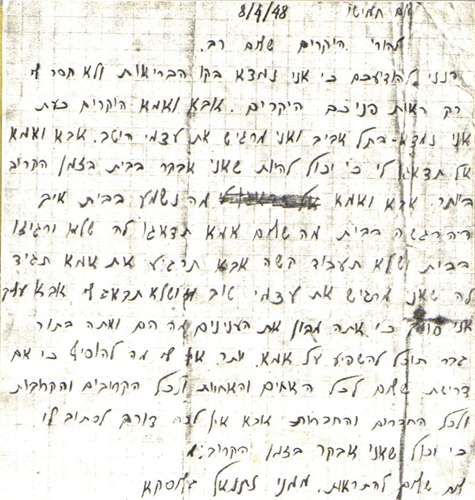 יום חמישי 8/4/48
להורי היקרים שלום רב.
הנני להודיעכם כי אני נמצא בקו הבריאות ולא חסר לי
רק ראות פניכם היקרים. אבא ואמא היקרים כעת
אני נמצא בתל אביב ואני מרגיש את עצמי היטב. אבא ואמא
אל תדאגו לי כי יכול להיות שאני אבקר בבית בזמן הקרוב
ביותר. אבא ואמא מה נשמע בבית איך
ההרגשה בבית מה שלום אמא תדאגו לה שלא
בבית ושלא תעבוד קשה אבא תרגיע את אמא תגיד
לה שאני מרגיש את עצמי טוב ושלא תדאג לי אבא
אני כי אתה מבין את הענינים מה הם ואתה בתור
גבר תוכל להשפיע על אמא. יותר אין לי מה להוסיף כי אם
דרישת שלום לכל האחים והאחיות ולכל הקרובים והקרובות
ולכל החברים והחברות אבא אין לכם צורך לכתוב לי
כי יכול שאני אבקר בזמן הקרוב.
שלום להתראות. ממני